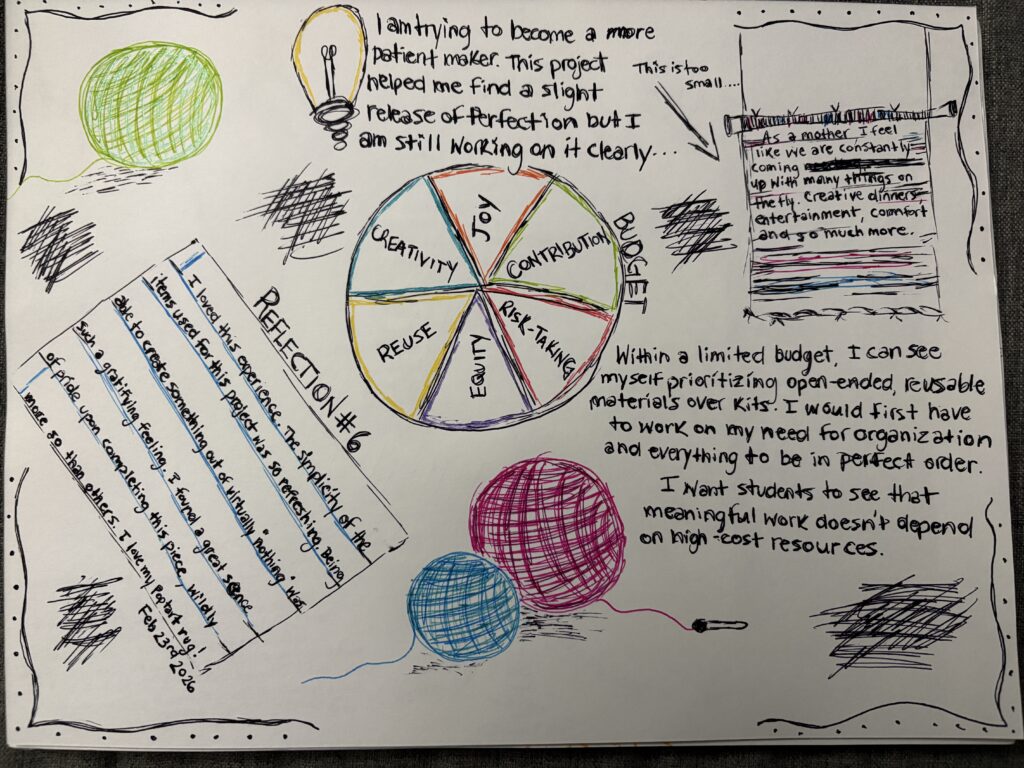 I am trying to become a more
patient maker. This project
helped me find a slight
release of Perfection but I
am still working on it clearly...
This is too
small....
As a mother I feel
like we are constantly
coming
up with many things on
the fly. Creative dinners,
entertainment, comfort
and so much more.
BUDGET
JOY
CONTRIBUTION
RISK-TAKING
EQUITY
REUSE
CREATIVITY
REFLECTION #6
I loved this experience. The symplicity of the
items used for this project was so refreshing. Being
able to create something out of virtually "nothing" was
such a gratifying feeling. I found a great sence
of pride upon completing this piece, wildly
more so than others. I love my Poptart rug!
Feb 23rd 2026
Within a limited budget, I can see
myself prioritizing open-ended, reusable
materials over kits. I would first have
to work on my need for organization
and everything to be in perfect order.
I want students to see that
meaningful work doesn't depend
on high-cost resources.